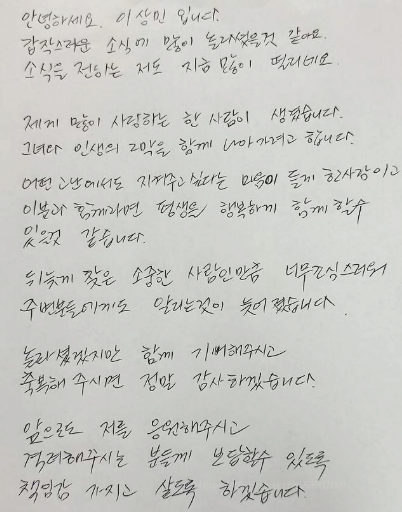 안녕하세요. 이상민 입니다.
갑작스러운 소식에 많이 놀라셨을것 같아요.
소식을 전하는 저도 지금 많이 떨리네요.
제게 많이 사랑하는 한 사람이 생겼습니다.
그녀와 인생의 2막을 함께 나아가려고 합니다.
어떤 고난에서도 지켜주고 싶다는 마음이 들게 한사람이고
이분과 함께라면 평생을 행복하게 함께 할수
있을것 같습니다.
뒤늦게 찾은 소중한 사람인만큼 너무조심스러워
주변분들에게도 알리는것이 늦어졌습니다.
놀라셨겠지만 함께 기뻐해주시고
축복해 주시면 정말 감사하겠습니다.
앞으로도 저를 응원해주시고
격려해주시는 분들께 보답할수 있도록
책임감 가지고 살도록 하겠습니다.